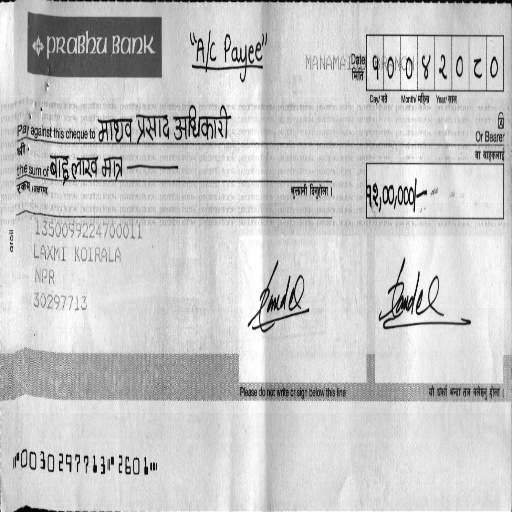 PRABHU BANK
"A/C Payee"
Date
मिति
१ ० ० ४ २ ० ८ ०
Day/गते Month/महिना Year/साल
Pay against this cheque to माधव प्रसाद अधिकारी
Or Bearer
श्री
वा वाहकलाई
the sum of बाह्र लाख मात्र
भुक्तानी दिनुहोला ।
१२,००,०००/-
1350099224700011
LAXMI KOIRALA
NPR
30297713
Please do not write or sign below this line
⑈0030297713⑈2601⑈